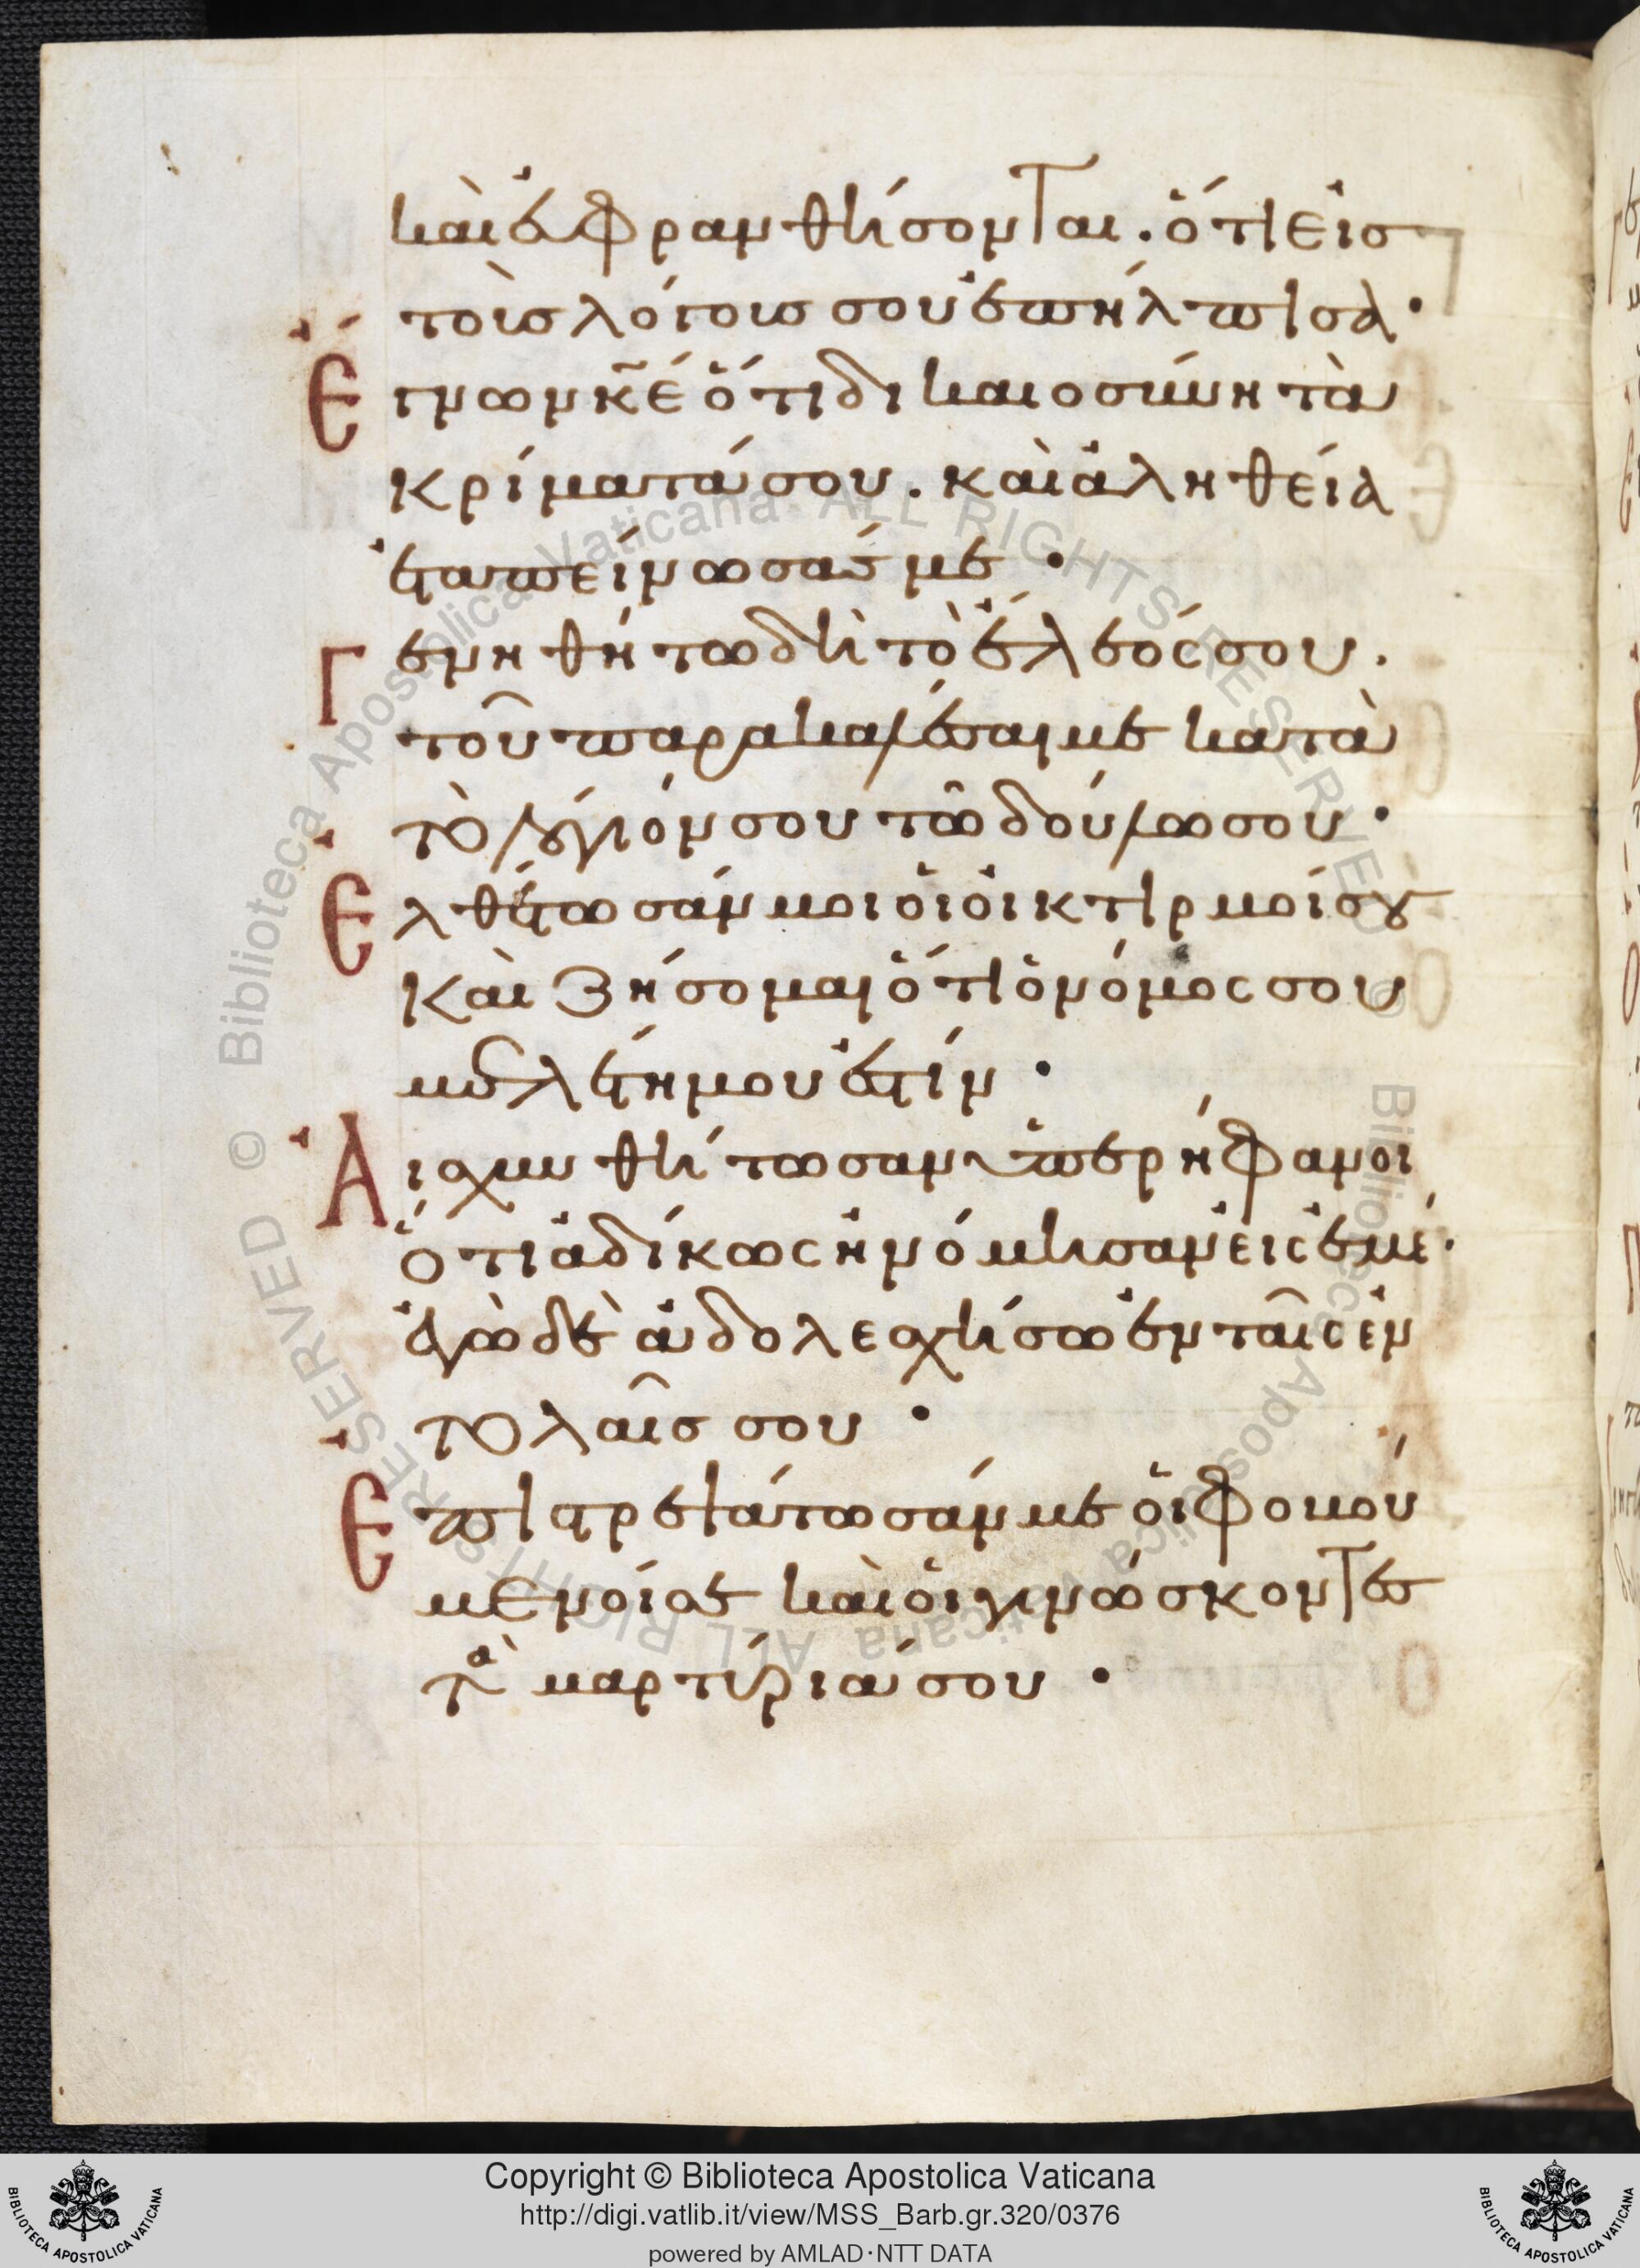 καὶ ἐυφρανθήσονται. ὅτι εἰσ
τοὺσ λόγουσ σου ἐπήλπισα·
Ἔγνων κε̄ ὅτι δικαιοσύνη τὰ
κρίματά σου. καὶ ἀληθεία
ἐταπείνωσάς με·
Γενηθήτω δὴ τὸ ἔλεός σου.
τοῦ παρακαλέσαι με κατὰ
τὸ λόγιόν σου τῶ δούλω σου·
Ἐλθέτωσάν μοι ὁι ὀικτιρμοί σου
καὶ ζήσομαι ὅτι ὁ νόμος σου
μελέτη μου ἐστίν·
Ἀισχυνθήτωσαν ὑπερήφανοι
ὅτι ἀδίκως ἠνόμησαν εἰς ἐμέ·
ἐγὼ δὲ ἀδολεσχήσω ἐν ταῖς ἐν
τολαῖσ σου·
Ἐπιστρεψάτωσάν με ὁι φοβού
μενοί σε καὶ ὁι γινώσκοντες
τὰ μαρτύριά σου·
Copyright © Biblioteca Apostolica Vaticana
http://digi.vatlib.it/view/MSS_Barb.gr.320/0376
powered by AMLAD·NTT DATA
BIBLIOTECA APOSTOLICA VATICANA
BIBLIOTECA APOSTOLICA VATICANA
© Biblioteca Apostolica Vaticana ALL RIGHTS RESERVED
© Biblioteca Apostolica Vaticana ALL RIGHTS RESERVED